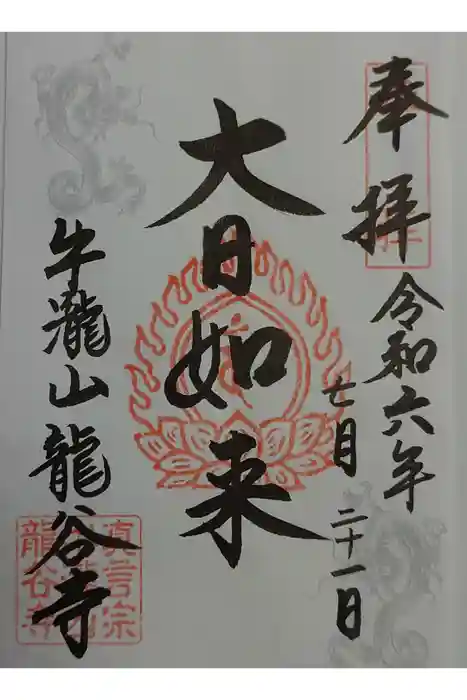 奉拝
令和六年
七月二十一日
大日如来
牛瀧山龍谷寺
真言宗
龍谷寺